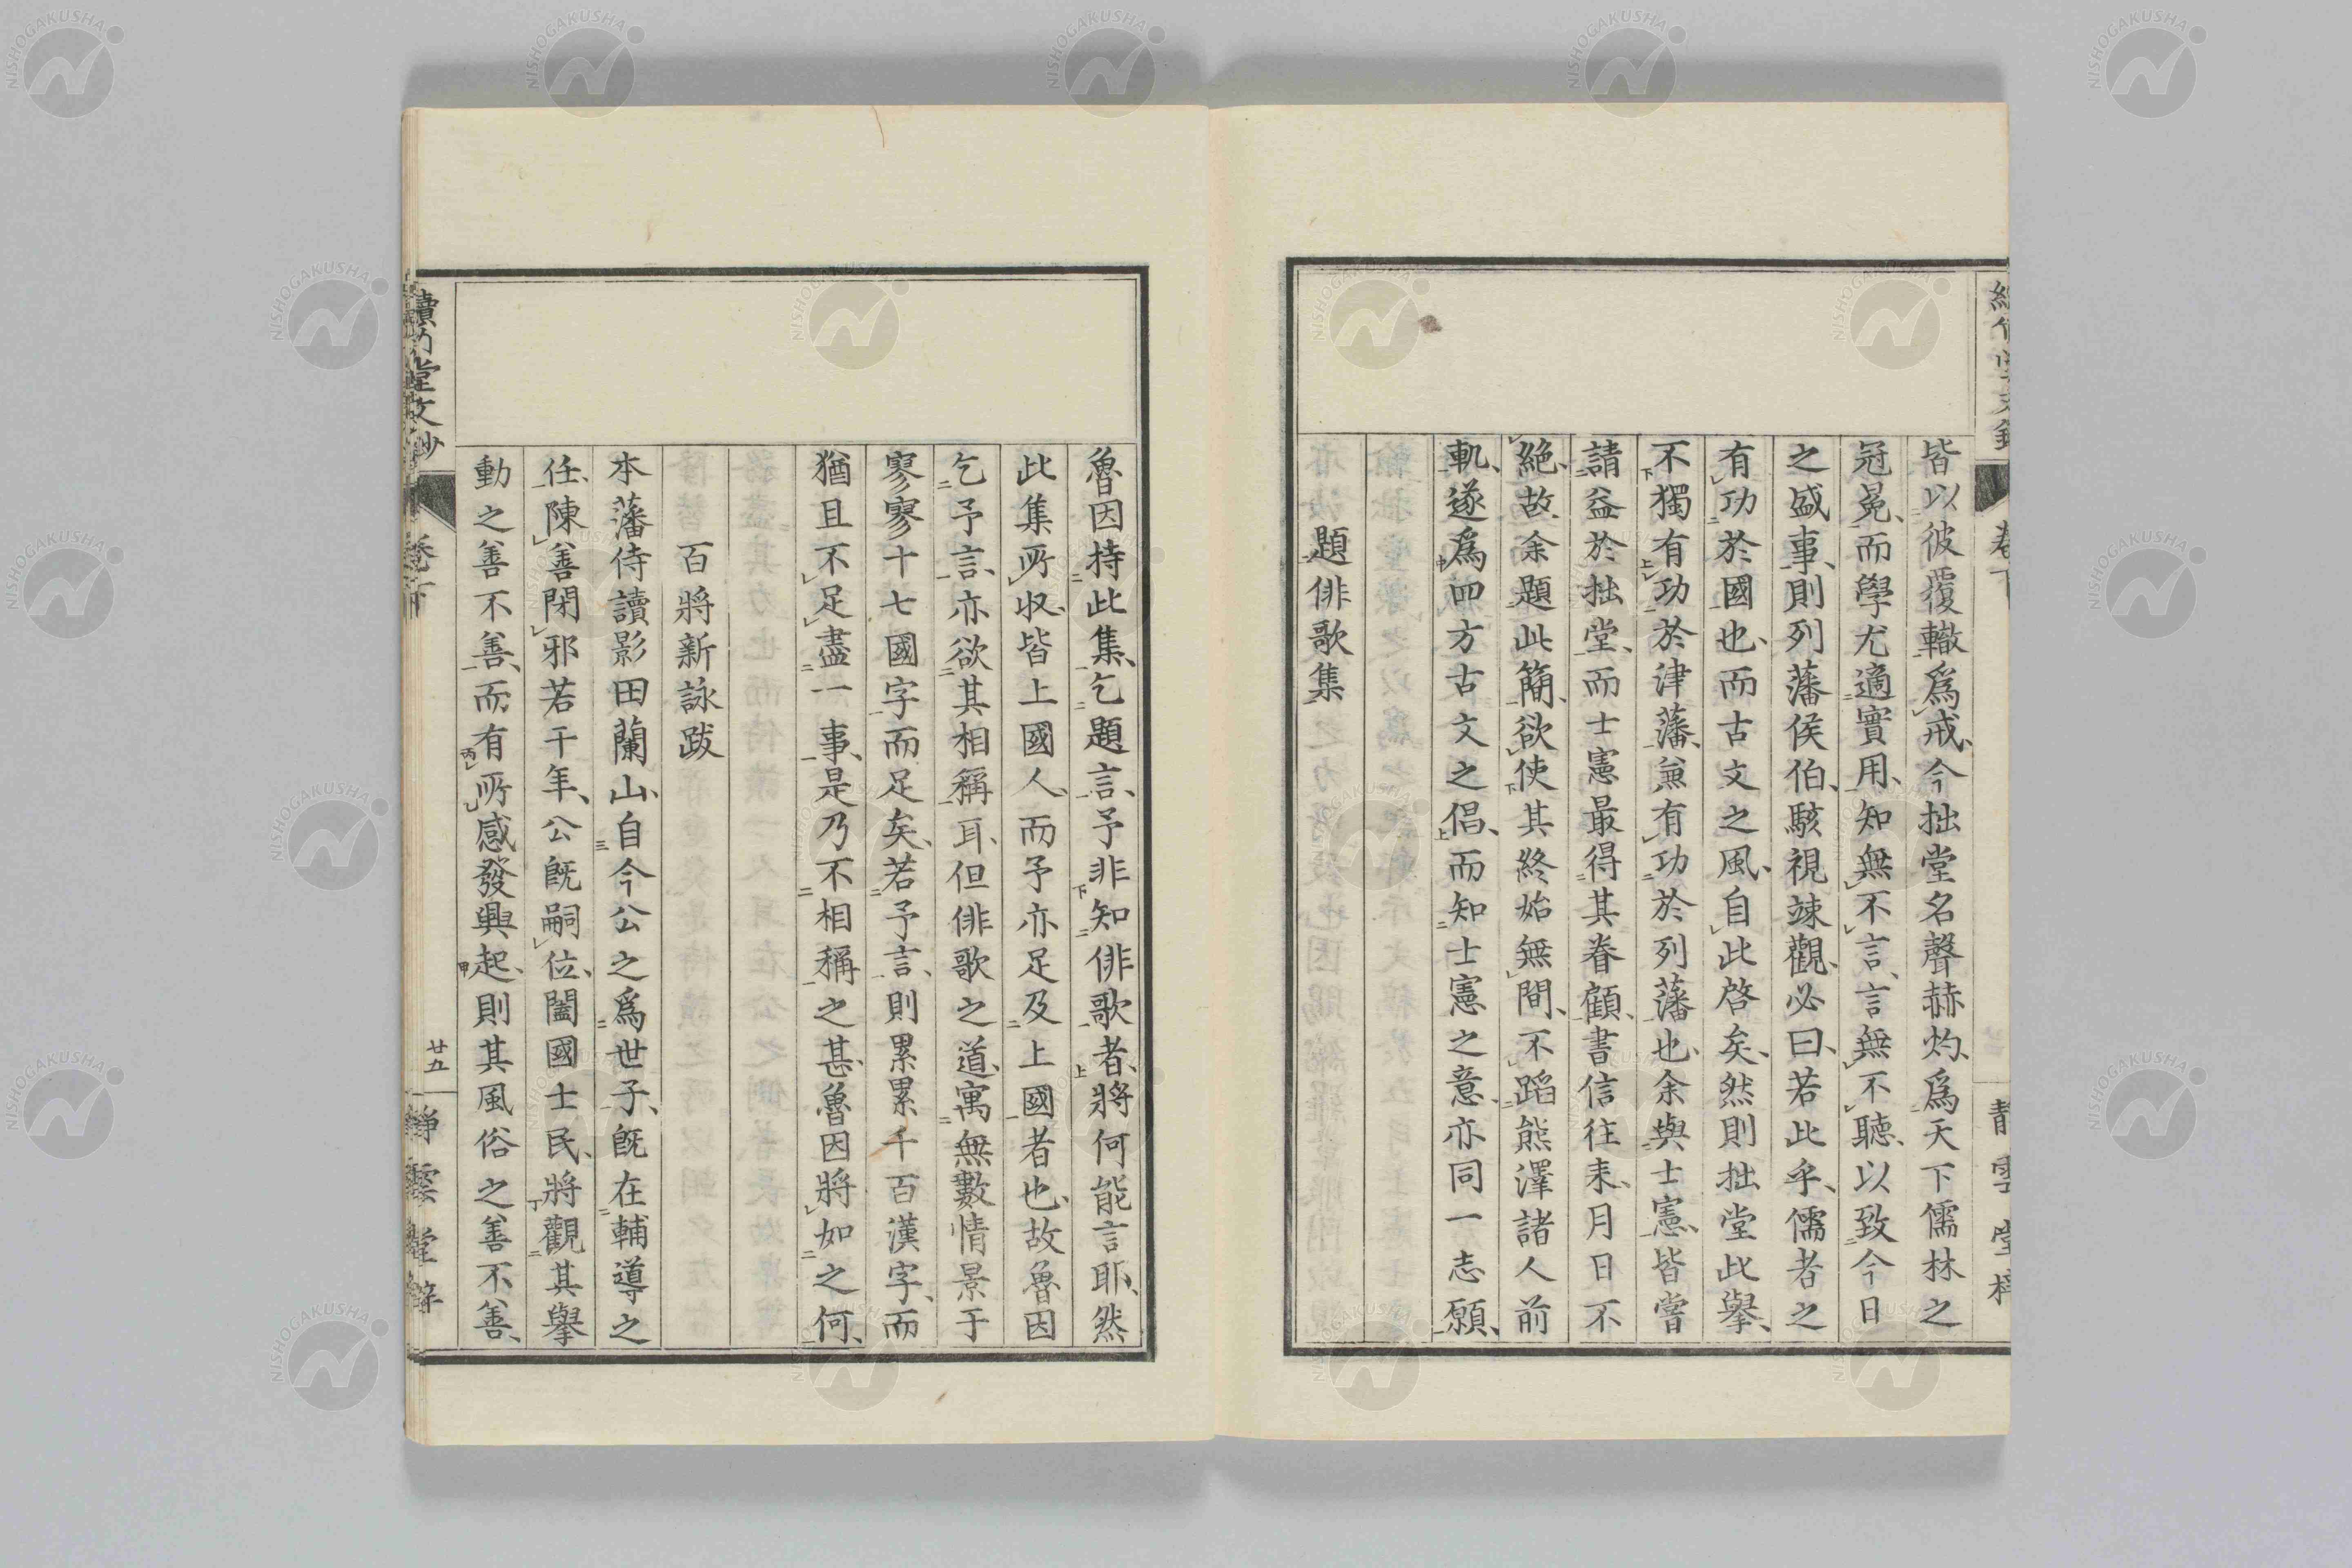 皆以彼覆轍爲戒、今拙堂名聲赫灼、爲天下儒林之
冠冕、而學尤適實用、知無不言、言無不聽、以致今日
之盛事、則列藩侯伯、駭視竦觀、必曰、若此乎、儒者之
有功於國也、而古文之風、自此啓矣、然則拙堂此擧、
不獨有功於津藩、兼有功於列藩也、余與士憲、皆嘗
請益於拙堂、而士憲最得其眷顧、書信往来、月日不
絶、故余題此簡、欲使其終始無間、不蹈熊澤諸人前
軌、遂爲四方古文之倡、而知士憲之意、亦同一志願、
題俳歌集
魯因持此集、乞題言、予非知俳歌者、將何能言耶、然
此集所収、皆上國人、而予亦足及上國者也、故魯因
乞予言、亦欲其相稱耳、但俳歌之道、寓無數情景于
寥寥十七國字而足矣、若予言、則累累千百漢字、而
猶且不足盡一事、是乃不相稱之甚、魯因將如之何、
百將新詠跋
本藩侍讀影田蘭山、自今公之爲世子、既在輔導之
任、陳善閉邪若干年、公既嗣位、闔國士民、將觀其擧
動之善不善、而有所感發興起、則其風俗之善不善、
讀 堂文鈔
卷下
廿五
靜雲堂梓
卷下
NISHOGAKUSHA